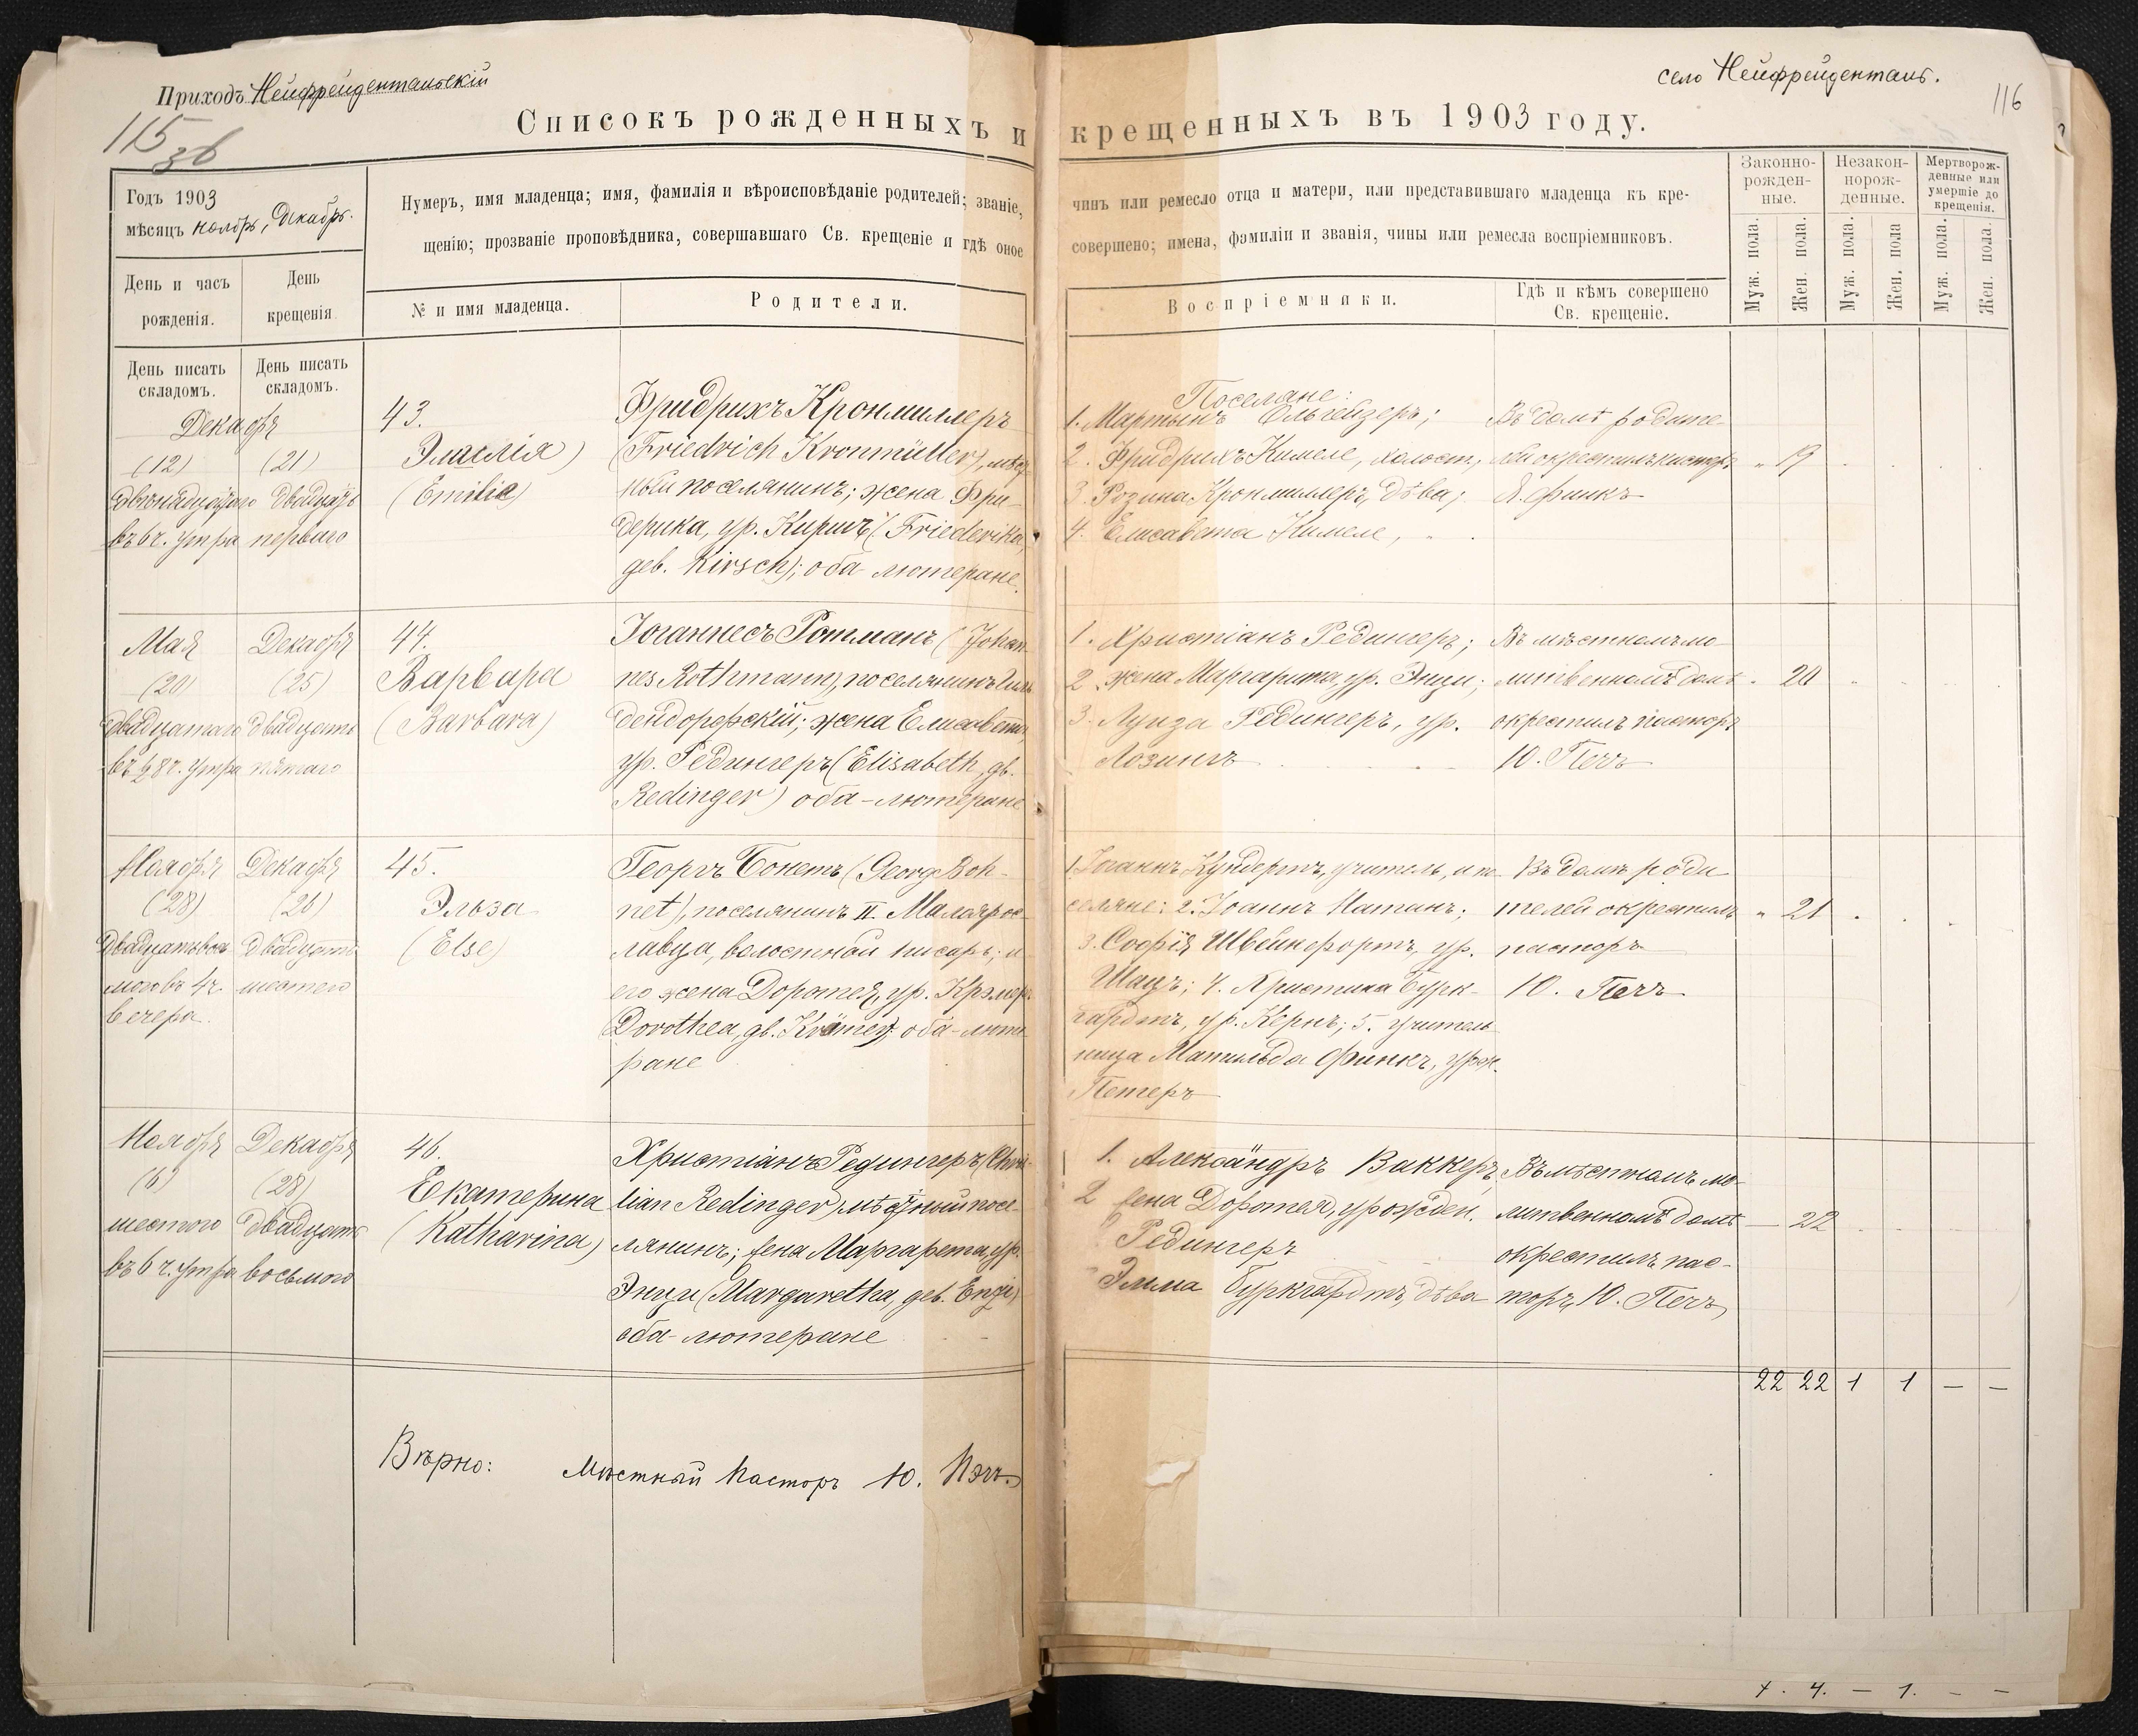 Приходъ Нейфрейдентальскій
село Нейфрейденталь.
116
115
36
Списокъ рожденныхъ и крещенныхъ въ 1903 году.
Годъ 1903
мѣсяцъ ноябрь, Декабрь.
Нумеръ, имя младенца; имя, фамилія и вѣроисповѣданіе родителей; званіе, чинъ или ремесло отца и матери, или представившаго младенца къ кре-
щенію; прозваніе проповѣдника, совершавшаго Св. крещеніе и гдѣ оное совершено; имена, фамиліи и званія, чины или ремесла воспріемниковъ.
Законно-
рожден-
ные.
Незакон-
норож-
денные.
Мертворож-
денные или
умершіе до
крещенія.
Муж. пола.
Жен. пола.
Муж. пола.
Жен. пола
Муж. пола.
Жен. пола.
День и часъ
рожденія.
День
крещенія
№ и имя младенца.
Родители.
Воспріемники.
Гдѣ и кѣмъ совершено
Св. крещеніе.
День писать
складомъ.
День писать
складомъ.
Декабря
(12)
двѣнадцатаго
въ 6 ч. утра
(21)
двадцать
перваго
43.
Эмилія)
(Emilie)
Фридрихъ Кронмиллеръ
(Friedrich Kronmüller), мѣст
ный поселянинъ; жена Фри-
дерика, ур. Киршъ (Friederika,
geb. Kirsch); оба лютеране.
Поселяне:
1. Мартынъ Ольгейзеръ;
2. Фридрихъ Кимеле, холост.,
3. Розина Кронмиллеръ, дѣва;
4. Елисавета Кимеле, "
Въ домѣ родите-
лей окрестилъ кистеръ
Я. Финкъ
" 19
Мая
(20)
двадцатаго
въ ½8 ч. утра
Декабря
(25)
двадцать
пятаго
44.
Варвара
(Barbara)
Іоганнесъ Ротманъ (Johan
nes Rothmann), поселянинъ
дендорфскій; жена Елисавета,
ур. Редингеръ (Elisabeth, gb.
Redinger) оба-лютеране
1. Христіанъ Редингеръ;
2. жена Маргарита, ур. Энци;
3. Луиза Редингеръ, ур.
Лозингъ
Въ мѣстномъ мо-
литвенномъ домѣ
окрестилъ пасторъ
Ю. Печъ
" 20
Ноября
(28)
Двадцать вось
мого въ 4 ч.
вечера.
Декабря
(26)
двадцать
шестого
45.
Эльза
(Else)
Георгъ Бонетъ (Georg Boh-
net), поселянинъ II. Малоярос-
лавца, волостной писарь; и
его жена Доротея, ур. Крэмеръ
(Dorothea, gb. Krämer); оба-люте
ране
1. Іоганнъ Кундертъ, учитель, и по-
селяне: 2. Іоаннъ Натанъ;
3. Софія Швейнфортъ, ур.
Шацъ; 4. Христина Бурк-
гардтъ, ур. Кернъ; 5. учитель-
ница Матильда Финкъ, урож.
Петеръ
Въ домѣ роди
телей окрестилъ
пасторъ
Ю. Печъ
" 21
Ноября
(6)
шестого
въ 6 ч. утра
Декабря
(28)
двадцать
восьмого
46.
Екатерина
(Katharina)
Христіанъ Редингеръ (Chris-
tian Redinger) мѣстный посе-
лянинъ; жена Маргарета, ур.
Энци (Margaretha, geb. Enzi)
оба-лютеране
1. Александръ Ваккеръ,
2 жена Доротея, урожден.
Редингеръ
Эмма Буркгардтъ, дѣва
Въ мѣстномъ мо-
литвенномъ домѣ
окрестилъ пас-
торъ Ю. Печъ
— 22
22 22 1 1 — —
Вѣрно: Мѣстный Пасторъ Ю. Пэчъ.
4. — 1. — —